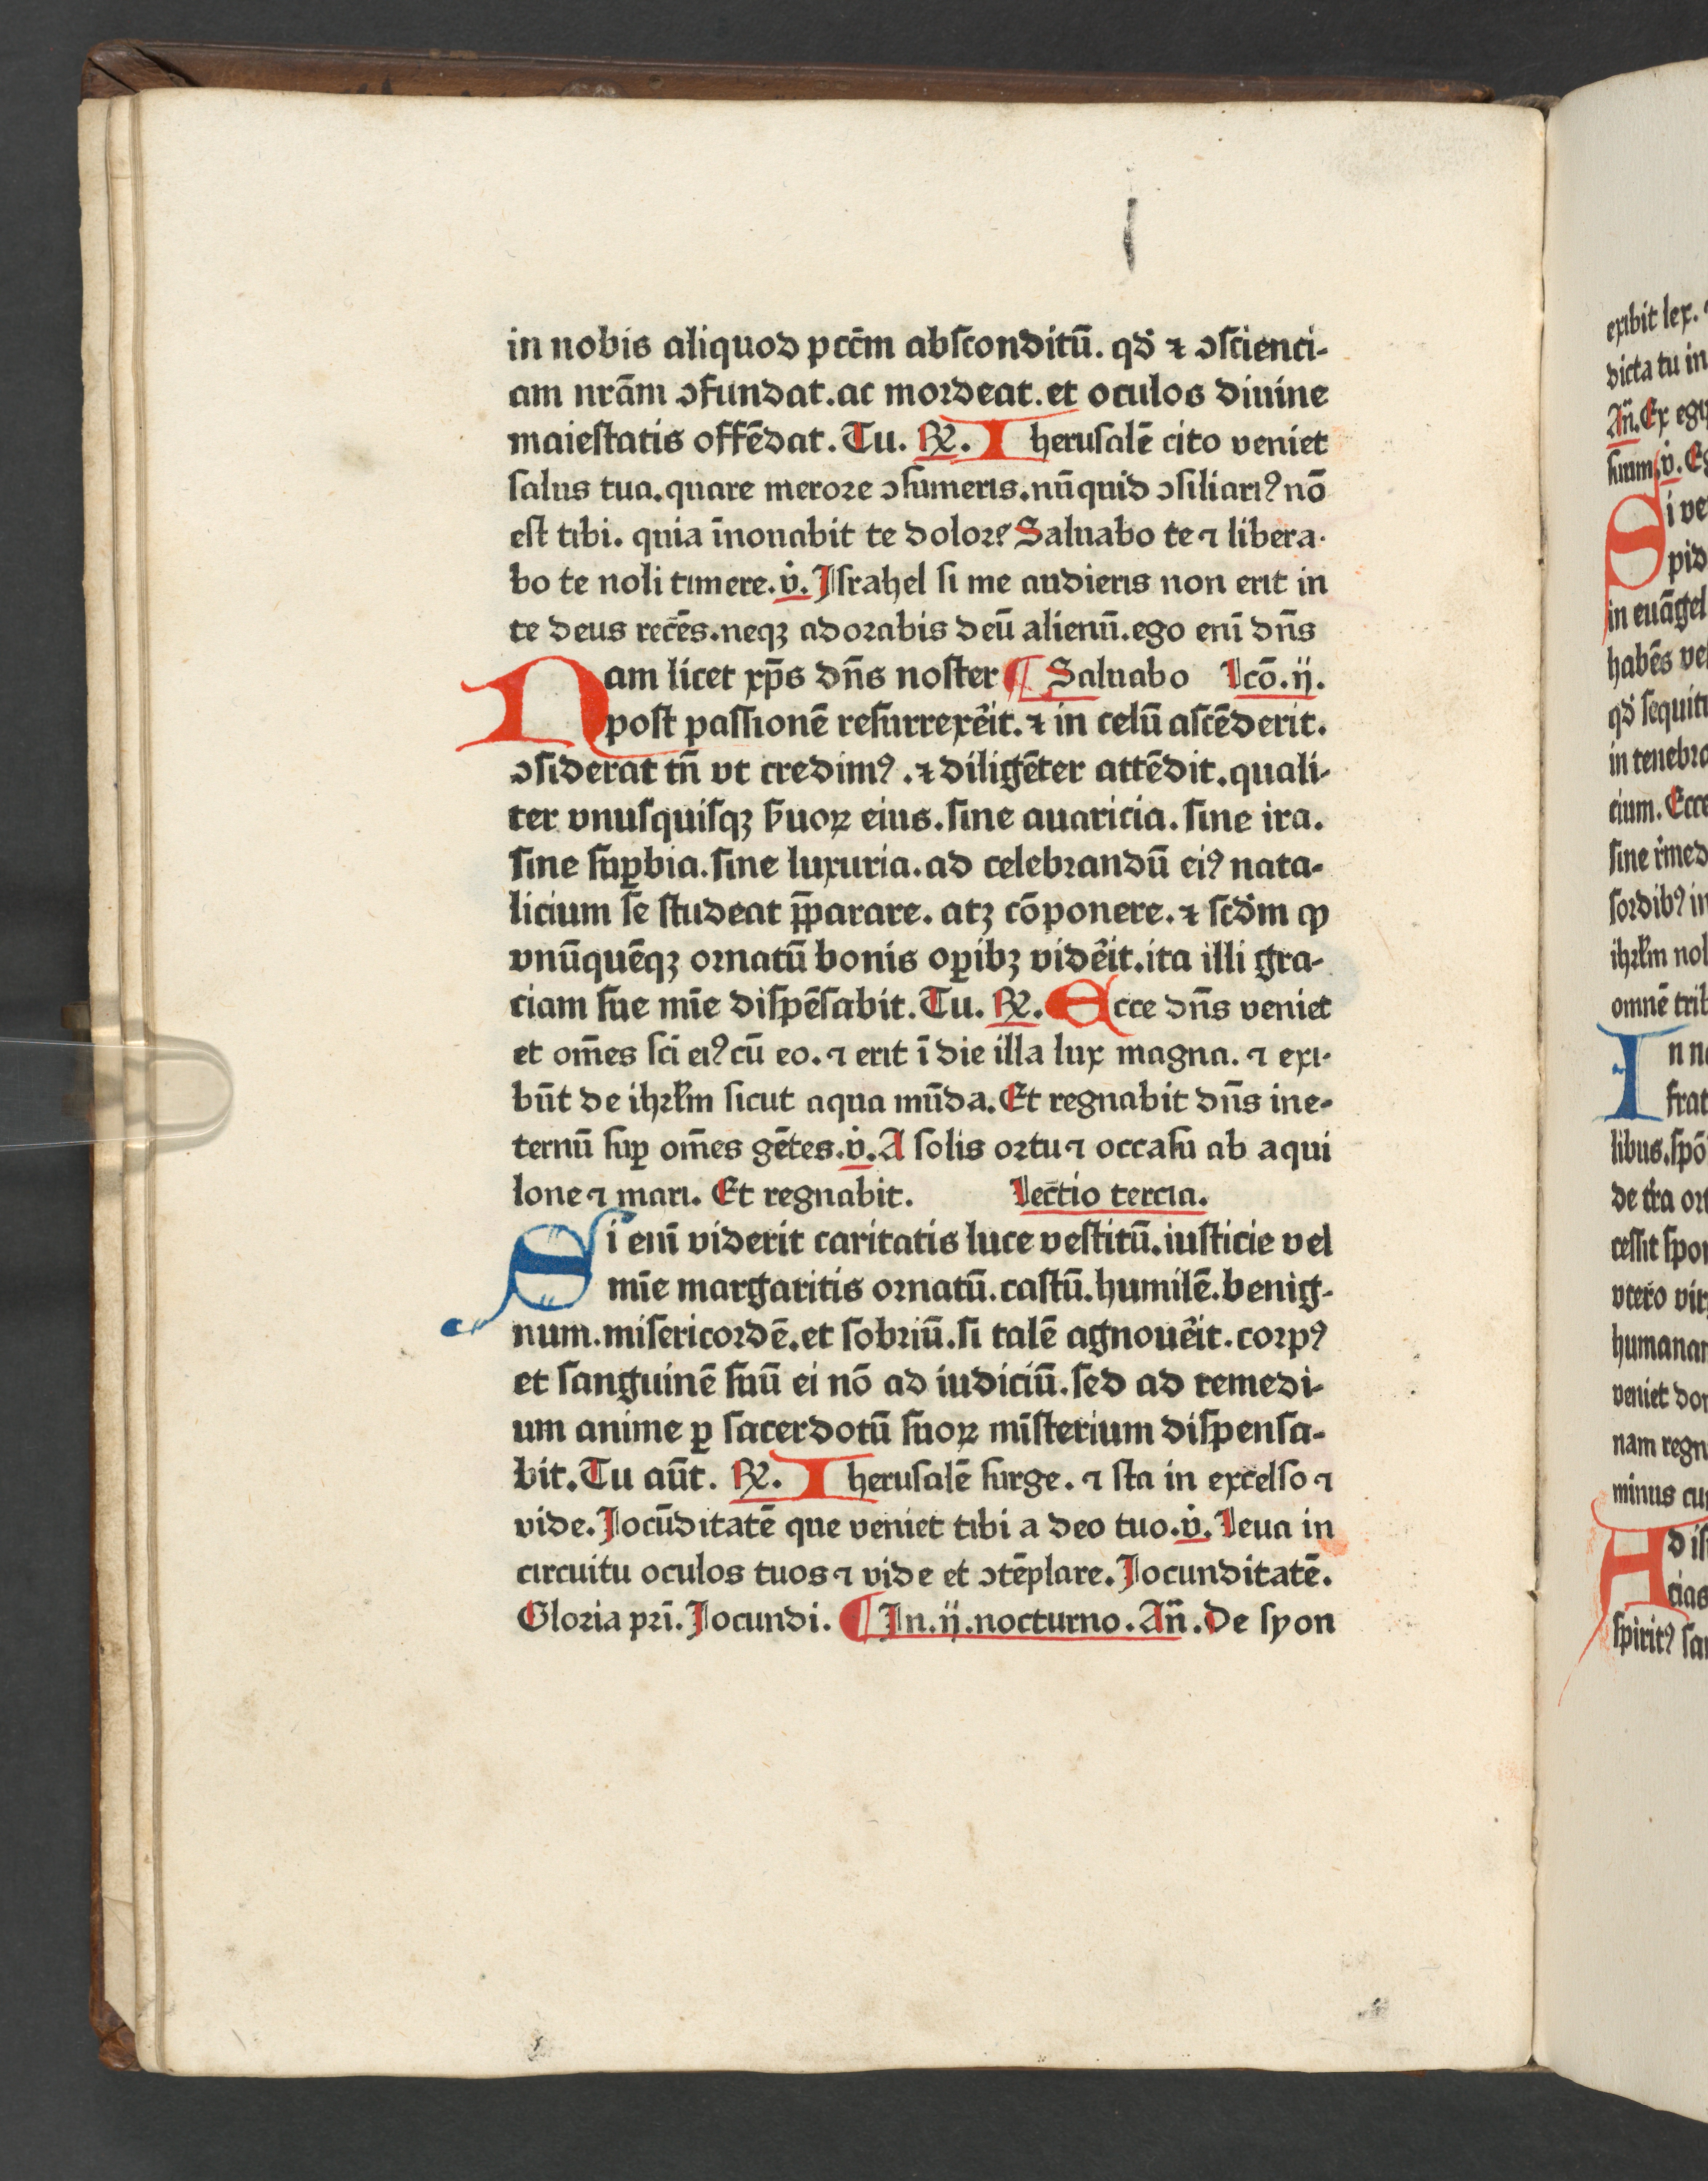 in nobis aliquod pcc̄m abſconditū. qd̛ ⁊ ↄſcienci-
am nr̄am ↄfundat. ac mordeat. et oculos diuine
maieſtatis offēdat. Tu. ℟. Iheruſalē cito veniet
ſalus tua. quare merore ↄſumeris. nūquid ↄſiliariꝰ nō
eſt tibi. quia īnouabit te dolorꝰ Saluabo te ⁊ libera-
bo te noli timere. v̇. Iſrahel ſi me audieris non erit in
te deus recēs. neqꝫ adorabis deū alienū. ego enī dn̄s
Nam licet xp̄s dn̄s noſter ¶ Saluabo lcō. ij.
poſt paſſionē reſurrexe͛it. ⁊ in celū aſcēderit.
ↄſiderat tn̄ vt credimꝰ. ⁊ diligēter attēdit. quali-
ter vnuſquiſqꝫ ẜuoꝝ eius. ſine auaricia. ſine ira.
ſine ſuꝑbia. ſine luxuria. ad celebrandū eiꝰ nata-
licium ſe ſtudeat p̄parare. atꝫ cōponere. ⁊ ſcd̛m ꝙ
vnūquēqꝫ ornatū bonis oꝑibꝫ vide͛it. ita illi gra-
ciam ſue mīe diſpēſabit. Tu. ℟. Ecce dn̄s veniet
et om̄es ſcī eiꝰ cū eo. ⁊ erit ī die illa lux magna. ⁊ exi-
būt de ihrl̄m ſicut aqua mūda. Et regnabit dn̄s ine-
ternū ſuꝑ om̄es gētes. v̇. A ſolis ortu ⁊ occaſu ab aqui
lone ⁊ mari. Et regnabit. Lectio tercia.
Si enī viderit caritatis luce veſtitū. iuſticie vel
mīe margaritis ornatū. caſtū. humilē. benig-
num. miſericordē. et ſobriū. ſi talē agnoue͛it. corpꝰ
et ſanguinē ſuū ei nō ad iudiciū. ſed ad remedi-
um anime ꝑ ſacerdotū ſuoꝝ mīſterium diſpenſa-
bit. Tu aūt. ℟. Iheruſalē ſurge. ⁊ ſta in excelſo ⁊
vide. Jocūditatē que veniet tibi a deo tuo. v̇. Leua in
circuitu oculos tuos ⁊ vide et ↄtēplare. Jocunditatē.
Gloria pr̄i. Jocundi. ¶ In. ij. nocturno. An̄. De ſyon
exibit lex.
dicta tu in
An̄. Ex egi
ſuum. v̇. Eg
Si ve
pid
in euāgel
habēs ve
qd̛ ſequit
in tenebra
cium. Ecce
ſine r̛med
ſordibꝰ in
ihrl̄m nol
omnē trib
In n
frat
libus. ſpō
de t͛ra or
ceſſit ſpo
vtero vir
humana
veniet do
nam regn
minus cu
Ad iſ
cias
ſpiritꝰ ſa